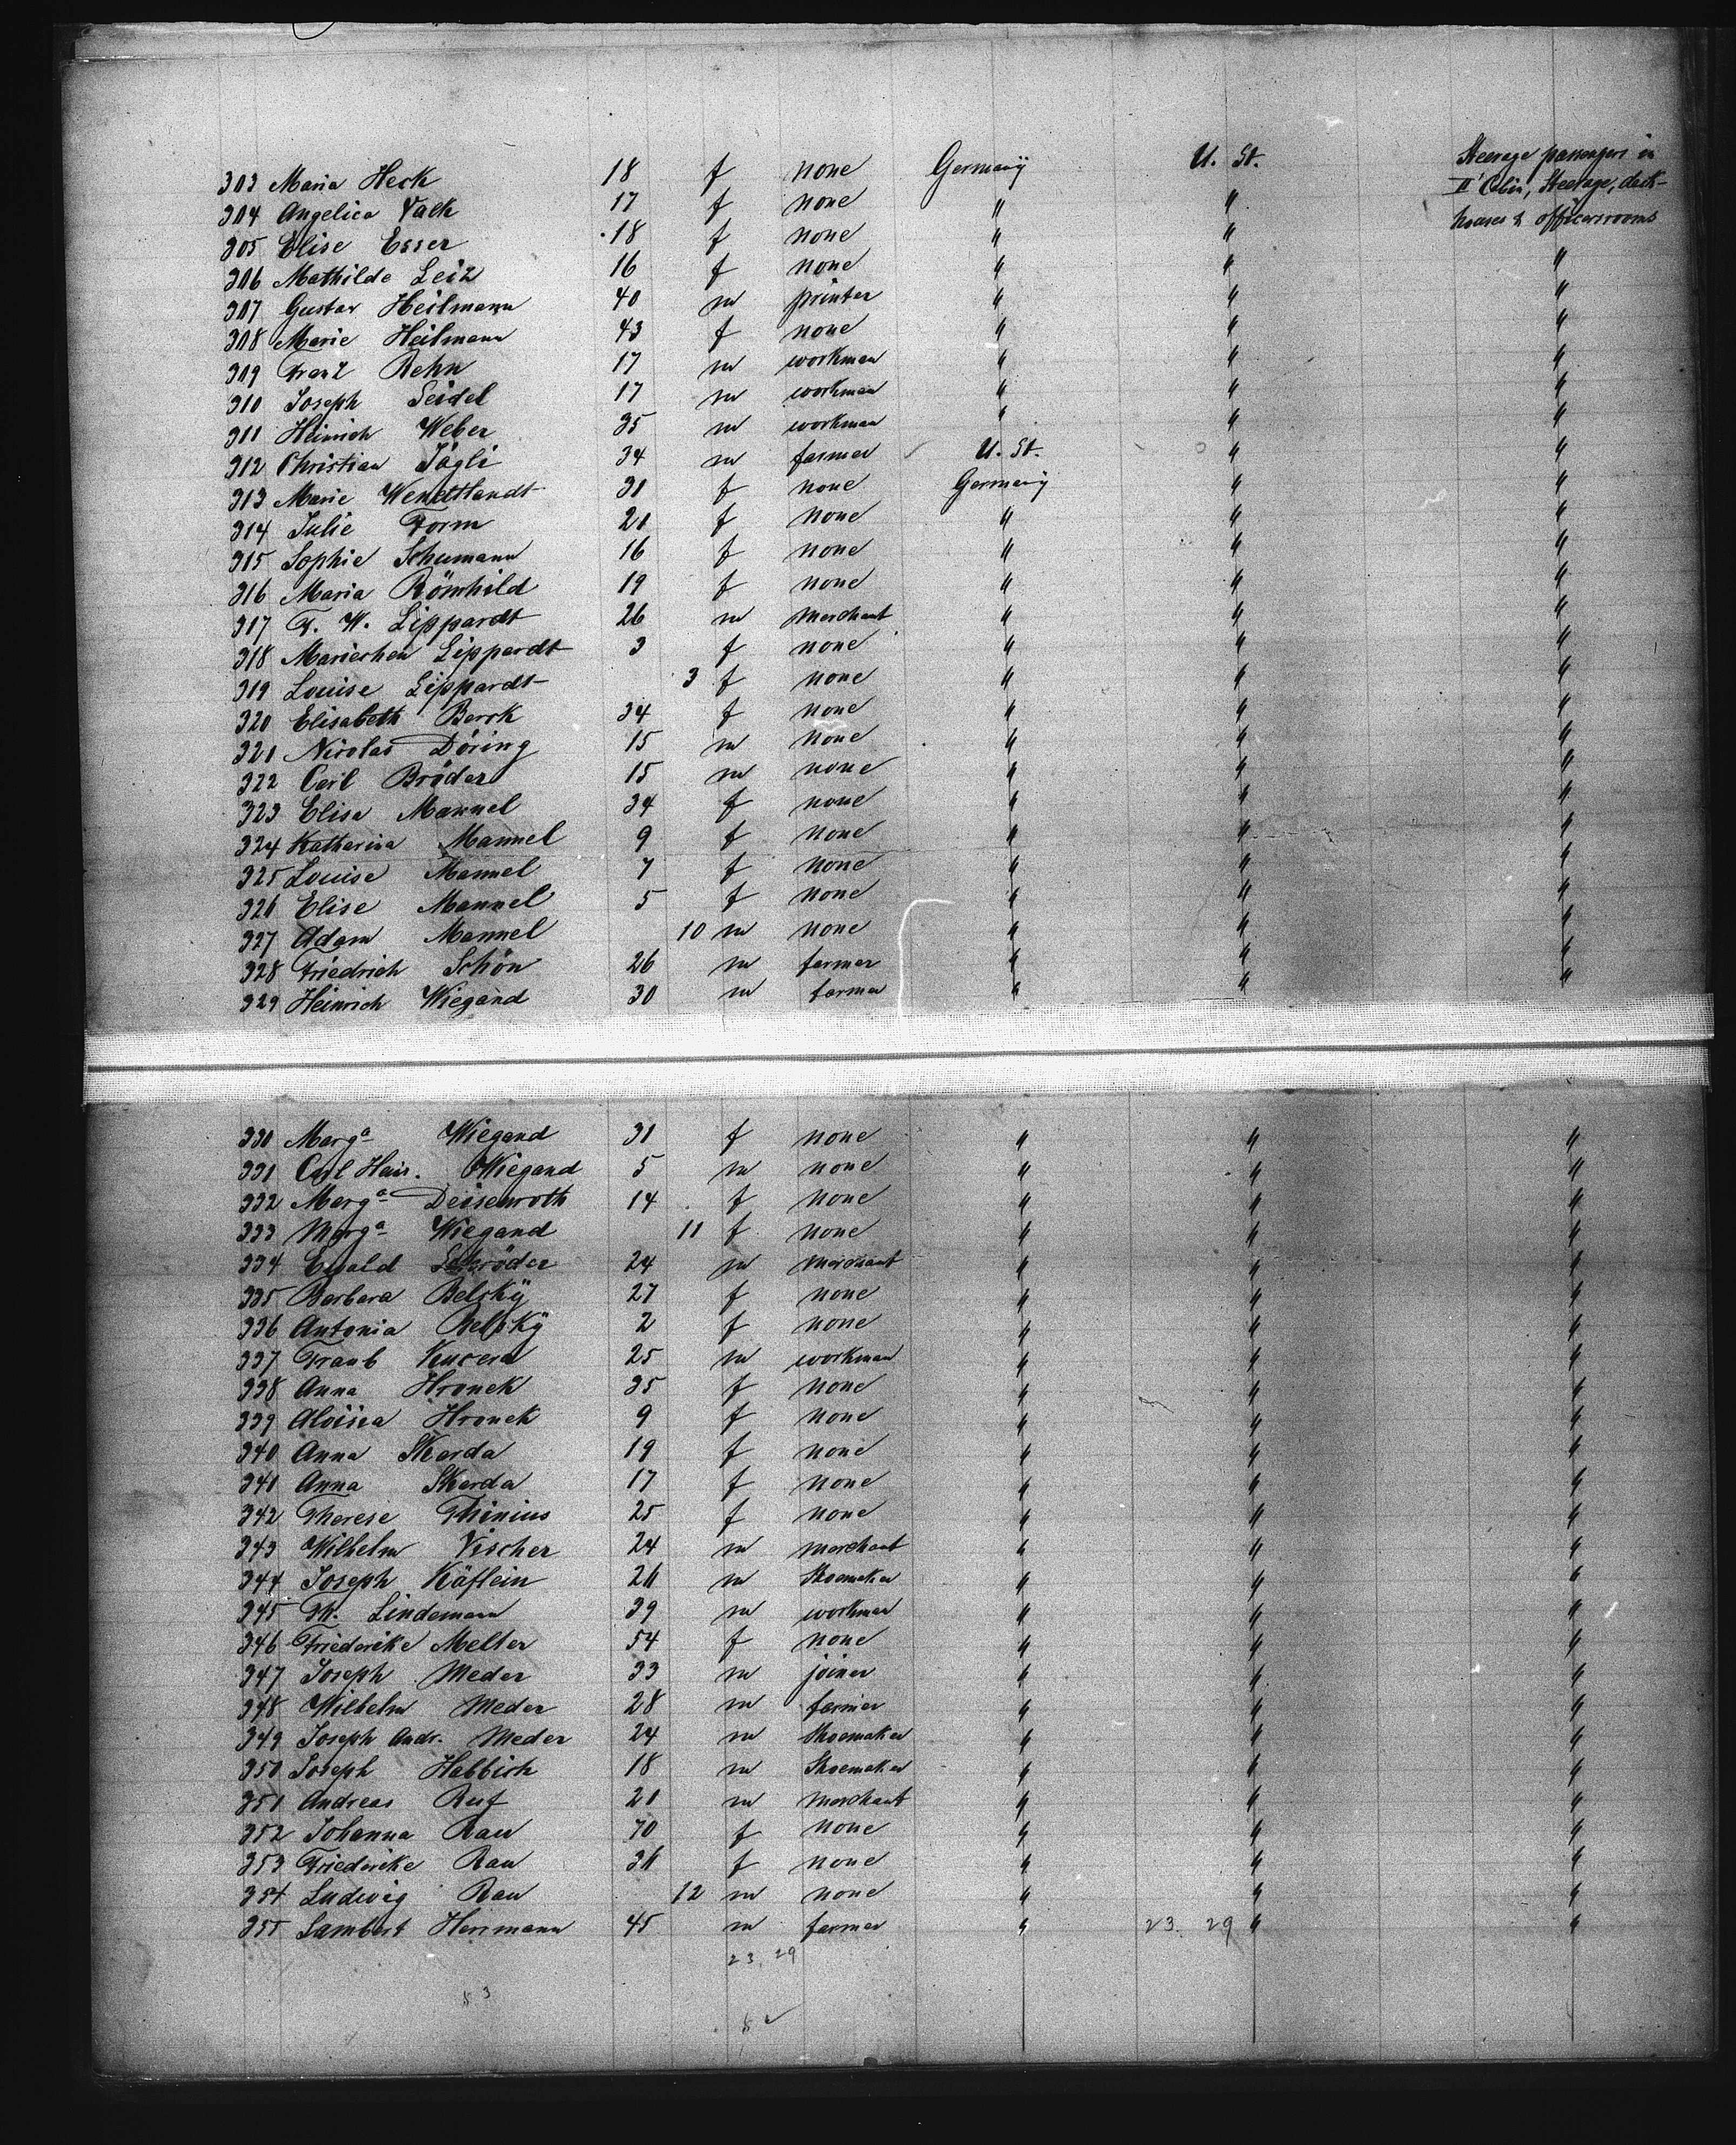 303 Maria Heck 18 f none Germany U. St. Steerage passengers in
II' Cabin, Steerage, deck-
304 Angelica Valk 17 f none " "
houses & officersrooms
305 Elise Esser 18 f none " "
306 Mathilde Leiz 16 f none " " "
307 Gustav Heilmann 40 m printer " " "
308 Marie Heilmann 43 f none " " "
309 Franz Rehn 17 m workman " " "
310 Joseph Seidel 17 m workman " " "
311 Heinrich Weber 35 m workman " " "
312 Christian Jägli 34 m farmer U. St. " "
313 Marie Wendtlandt 31 f none Germany " "
314 Julie Form 21 f none " " "
315 Sophie Schumann 16 f none " " "
316 Maria Römhild 19 f none " " "
317 F. W. Lippardt 26 m merchant " " "
318 Mariechen Lippardt 3 f none " " "
319 Louise Lippardt 3 f none " " "
320 Elisabeth Berck 34 f none " " "
321 Nicolas Döring 15 m none " " "
322 Carl Bröder 15 m none " " "
323 Elisa Mannel 34 f none " " "
324 Katharina Mannel 9 f none " " "
325 Louise Mannel 7 f none " " "
326 Elise Mannel 5 f none " " "
327 Adam Mannel 10 m none " " "
328 Friedrich Schön 26 m farmer " " "
329 Heinrich Wiegand 30 m farmer " " "
330 Marga Wiegand 31 f none " " "
331 Carl Hein. Wiegand 5 m none " " "
332 Marga Deisenroth 14 f none " " "
333 Marga Wiegand 11 f none " " "
334 Ewald Schröder 24 m merchant " " "
335 Barbara Belskÿ 27 f none " " "
336 Antonia Belskÿ 2 f none " " "
337 Kucera 25 m workman " " "
338 Anna Hronek 35 f none " " "
339 Aloisia Hronek 9 f none " " "
340 Anna Skarda 19 f none " " "
341 Anna Skarda 17 f none " " "
342 Therese Thinius 25 f none " " "
343 Wilhelm Vischer 24 m merchant " " "
344 Joseph Käflein 21 m Shoemaker " " "
345 Th. Lindemann 39 m workman " " "
346 Friederike Melter 54 f none " " "
347 Joseph Meder 33 m joiner " " "
348 Wilhelm Meder 28 m farmer " " "
349 Joseph Andr. Meder 24 m Shoemaker " " "
350 Joseph Habbich 18 m Shoemaker " " "
351 Andreas Ruf 21 m merchant " " "
352 Johanna Rau 70 f none " " "
353 Friederike Rau 31 f none " " "
354 Ludwig Rau 12 m none " " "
355 Lambert Herrmann 45 m farmer " 23. 29 " "
23. 29